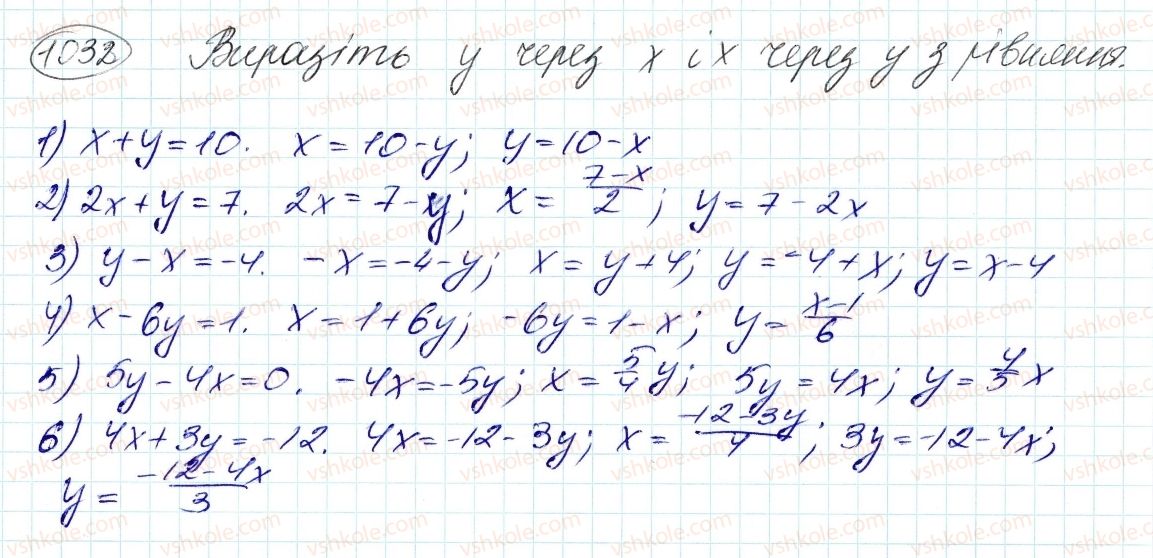 1032 Виразіть y через x і x через y з рівняння.
1) x + y = 10. x = 10 - y; y = 10 - x
2) 2x + y = 7. 2x = 7 - y; x = (7 - x)/2; y = 7 - 2x
3) y - x = -4. -x = -4 - y; x = y + 4; y = -4 + x; y = x - 4
4) x - 6y = 1. x = 1 + 6y; -6y = 1 - x; y = (x - 1)/6
5) 5y - 4x = 0. -4x = -5y; x = 5/4 y; 5y = 4x; y = 4/5 x
6) 4x + 3y = -12. 4x = -12 - 3y; x = (-12 - 3y)/4; 3y = -12 - 4x;
y = (-12 - 4x)/3
vshkole.com